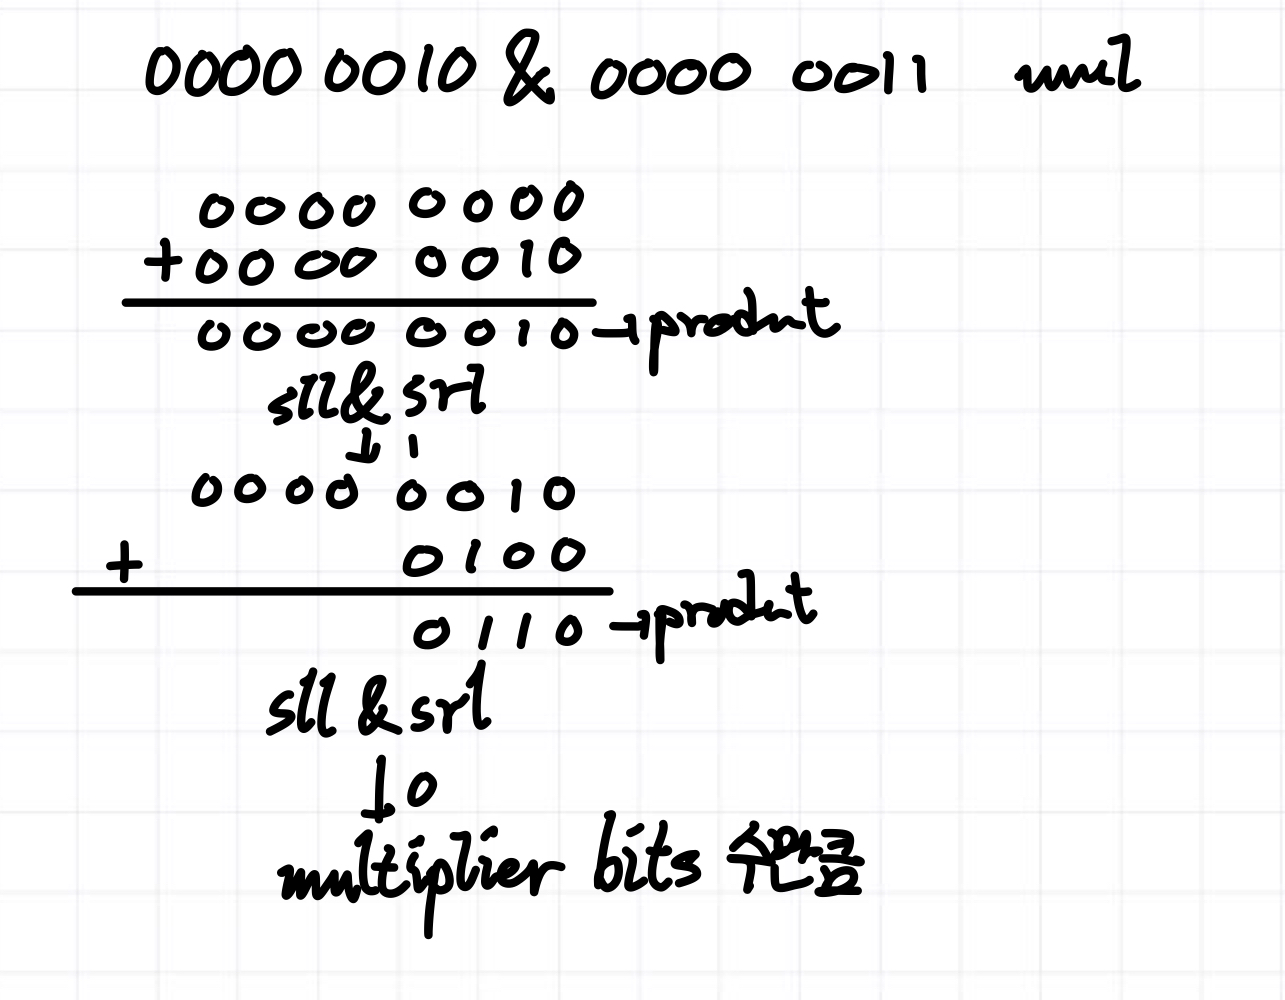 0000 0010 & 0000 0011 mul
0000 0000
+0000 0010
0000 0010 → product
sll & srl
↓ 1
0000 0010
+ 0100
0110 → product
sll & srl
↓ 0
multiplier bits 수만큼